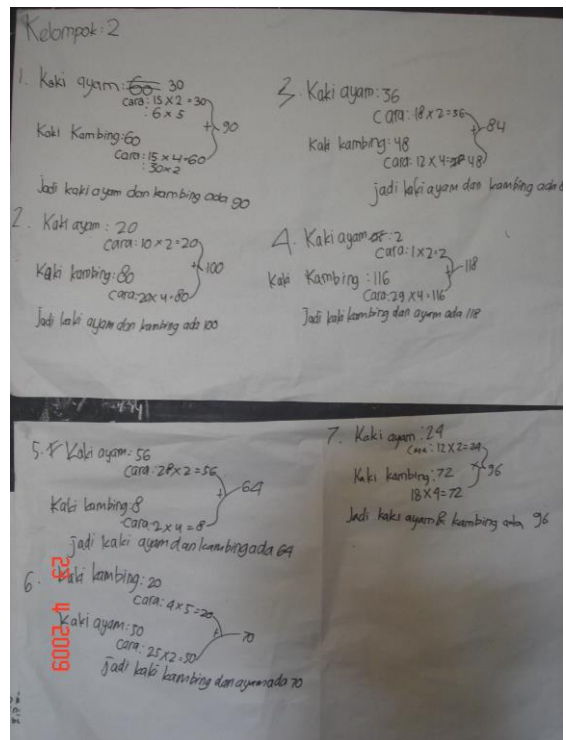 Kelompok: 2
1. Kaki ayam: 60 30
cara: 15 x 2 = 30
: 6 x 5
+ 90
Kaki Kambing: 60
Cara: 15 x 4 = 60
: 30 x 2
Jadi kaki ayam dan kambing ada 90
2. Kaki ayam: 20
cara: 10 x 2 = 20
+ 100
Kaki kambing: 80
cara: 20 x 4 = 80
Jadi kaki ayam dan kambing ada 100
3. Kaki ayam: 36
cara: 18 x 2 = 36
+ 84
Kaki kambing: 48
Cara: 12 x 4 = 48
jadi kaki ayam dan kambing ada
4. Kaki ayam : 2
Cara: 1 x 2 = 2
+ 118
Kaki Kambing : 116
Cara: 29 x 4 = 116
Jadi kaki kambing dan ayam ada 118
5. Kaki ayam: 56
cara: 28 x 2 = 56
+ 64
Kaki kambing: 8
cara: 2 x 4 = 8
jadi kaki ayam dan kambing ada 64
6. Kaki kambing: 20
cara: 4 x 5 = 20
+ 70
Kaki ayam: 50
cara: 25 x 2 = 50
jadi kaki kambing dan ayam ada 70
7. Kaki ayam: 24
Cara: 12 x 2 = 24
+ 96
Kaki kambing: 72
18 x 4 = 72
Jadi kaki ayam & kambing ada 96
23 4 2009